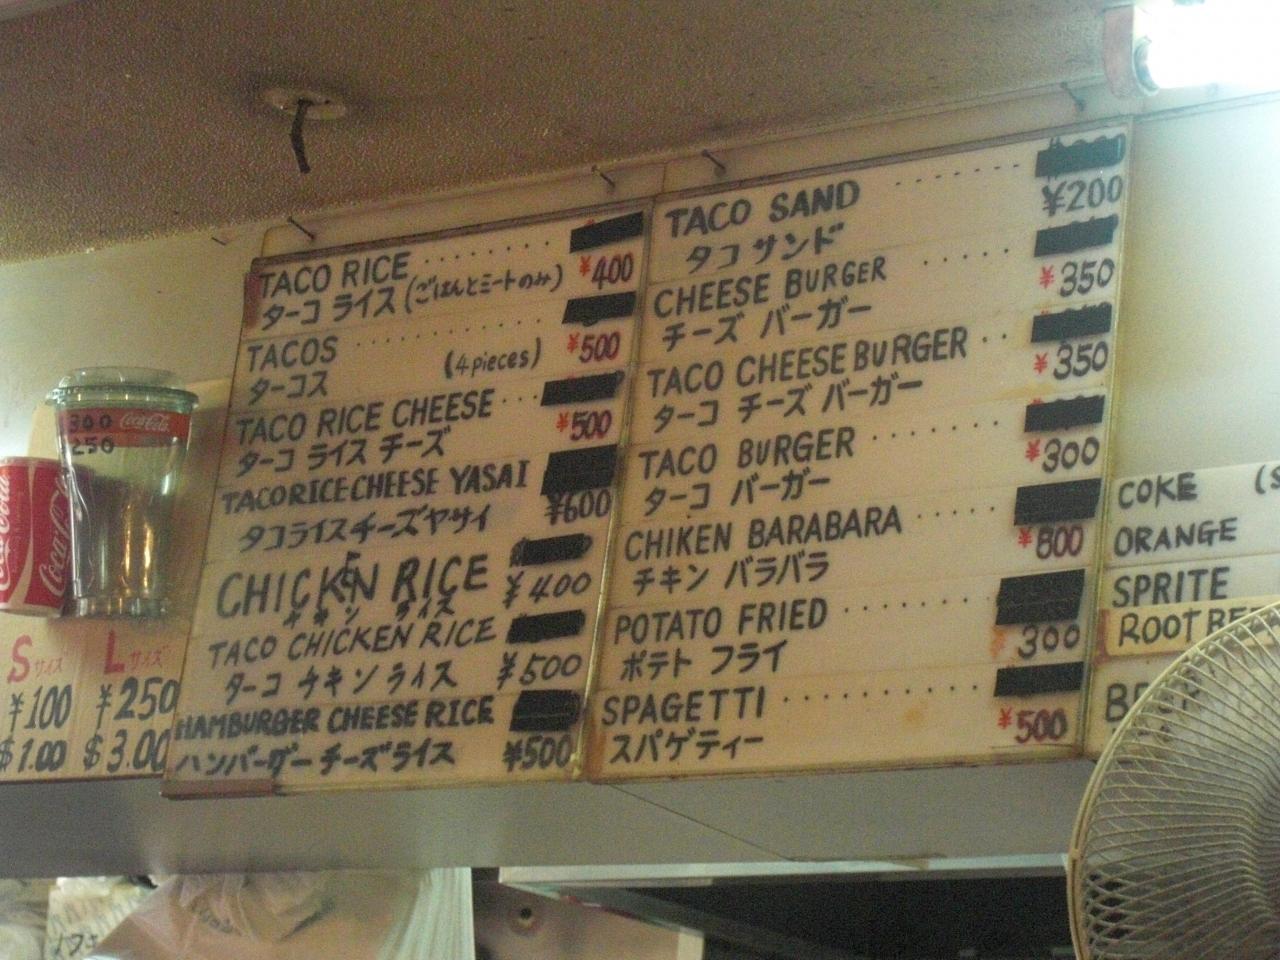 TACO RICE ........ ¥400
ターコ ライス (ごはんとミートのみ)
TACOS ........ (4 pieces) ¥500
ターコス
TACO RICE CHEESE ... ¥500
ターコ ライス チーズ
TACORICE CHEESE YASAI ¥600
タコライスチーズヤサイ
CHICKEN RICE ¥400
チキン ライス
TACO CHICKEN RICE ¥500
ターコ チキン ライス
HAMBURGER CHEESE RICE
ハンバーグーチーズライス ¥500
TACO SAND ....... ¥200
タコ サンド
CHEESE BURGER ..... ¥350
チーズ バーガー
TACO CHEESE BURGER .. ¥350
ターコ チーズ バーガー
TACO BURGER ....... ¥300
ターコ バーガー
CHIKEN BARABARA ...... ¥800
チキン バラバラ
POTATO FRIED ........ 300
ポテト フライ
SPAGETTI ........... ¥500
スパゲティー
300 Coca-Cola
250
Coca-Cola
Sサイズ Lサイズ
¥100 ¥250
$1.00 $3.00
COKE (S
ORANGE
SPRITE
ROOT BE